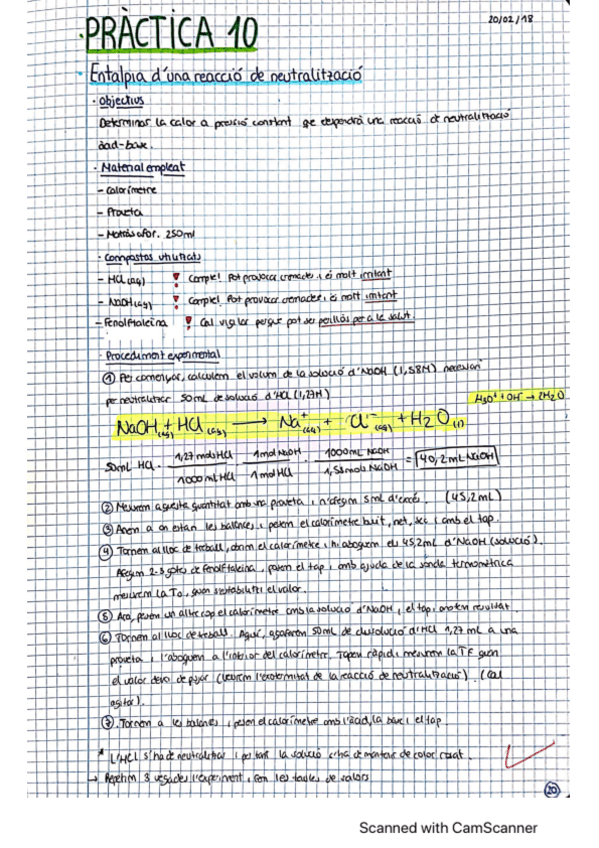 20/02/18
·PRÀCTICA 10
·Entalpia d'una reacció de neutralització
· Objectius
Determinar la calor a pressió constant que desprendrà una reacció de neutralització
àcid-base.
· Material empleat
- Calorímetre
- Proveta
- Matràs afor. 250ml
· Compostos utilitzats
- HCl (aq) ! Compte! Pot provocar cremades i és molt irritant
- NaOH (aq) ! Compte! Pot provocar cremades i és molt irritant
- Fenolftaleïna ! Cal vigilar perquè pot ser perillós per a la salut.
· Procediment experimental
① Per començar, calculem el volum de la solució d'NaOH (1,58M) necessari
per neutralitzar 50mL de solució d'HCl (1,27M)
H3O+ + OH- → 2H2O
NaOH(aq) + HCl (aq) → Na+(aq) + Cl-(aq) + H2O (l)
50mL HCl · 1,27 mols HCl / 1000mL HCl · 1mol NaOH / 1 mol HCl · 1000mL NaOH / 1,58mols NaOH = 40,2mL NaOH
② Mesurem aquesta quantitat amb una proveta i n'afegim 5ml d'excés. (45,2mL)
③ Anem a on estan les balances i pesem el calorímetre buit, net, sec i amb el tap.
④ Tornem al lloc de treball, obrim el calorímetre i hi aboquem els 45,2mL d'NaOH (solució).
Afegim 2-3 gotes de Fenolftaleïna, posem el tap i amb ajuda de la sonda termomètrica
mesurem la To, quan s'estabilitzi el valor.
⑤ Ara, pesem un altre cop el calorímetre amb la solució d'NaOH i el tap i anotem resultat.
⑥ Tornem al lloc de treball. Aquí, agafarem 50mL de dissolució d'HCl 1,27 mL a una
proveta i l'aboquem a l'interior del calorímetre. Tapem ràpid i mesurem la TF quan
el valor deixi de pujar (veurem l'exotermitat de la reacció de neutralització). (Cal
agitar).
⑦. Tornem a les balances i pesem el calorímetre amb l'àcid, la base i el tap.
* L'HCl s'ha de neutralitzar i per tant la solució s'ha de mantenir de color rosat.
→ Repetim 3 vegades l'experiment i fem les taules de valors
20
Scanned with CamScanner